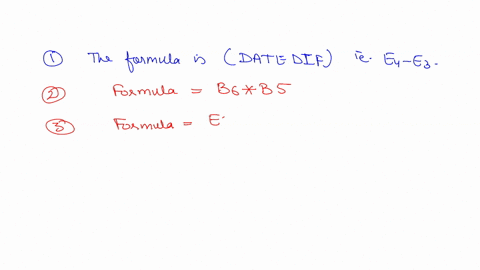 ① The formula is (DATEDIF) ie. E4-E3.
② Formula = B6*B5
③ Formula = E